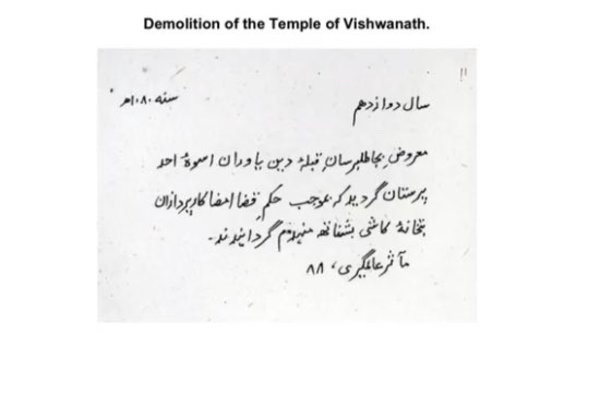 Demolition of the Temple of Vishwanath.
۱۱
سال دوازدهم سنه ۱۰۸۰ھ
معروض قبلۂ دین یاوران اسوۂ احد
پرستان گردید که بموجب حکم قضا امضا کارپردازان
بتخانۂ کاشی بشناتھ منہدم گردانیدند۔
مآثر عالمگیری، ۸۸